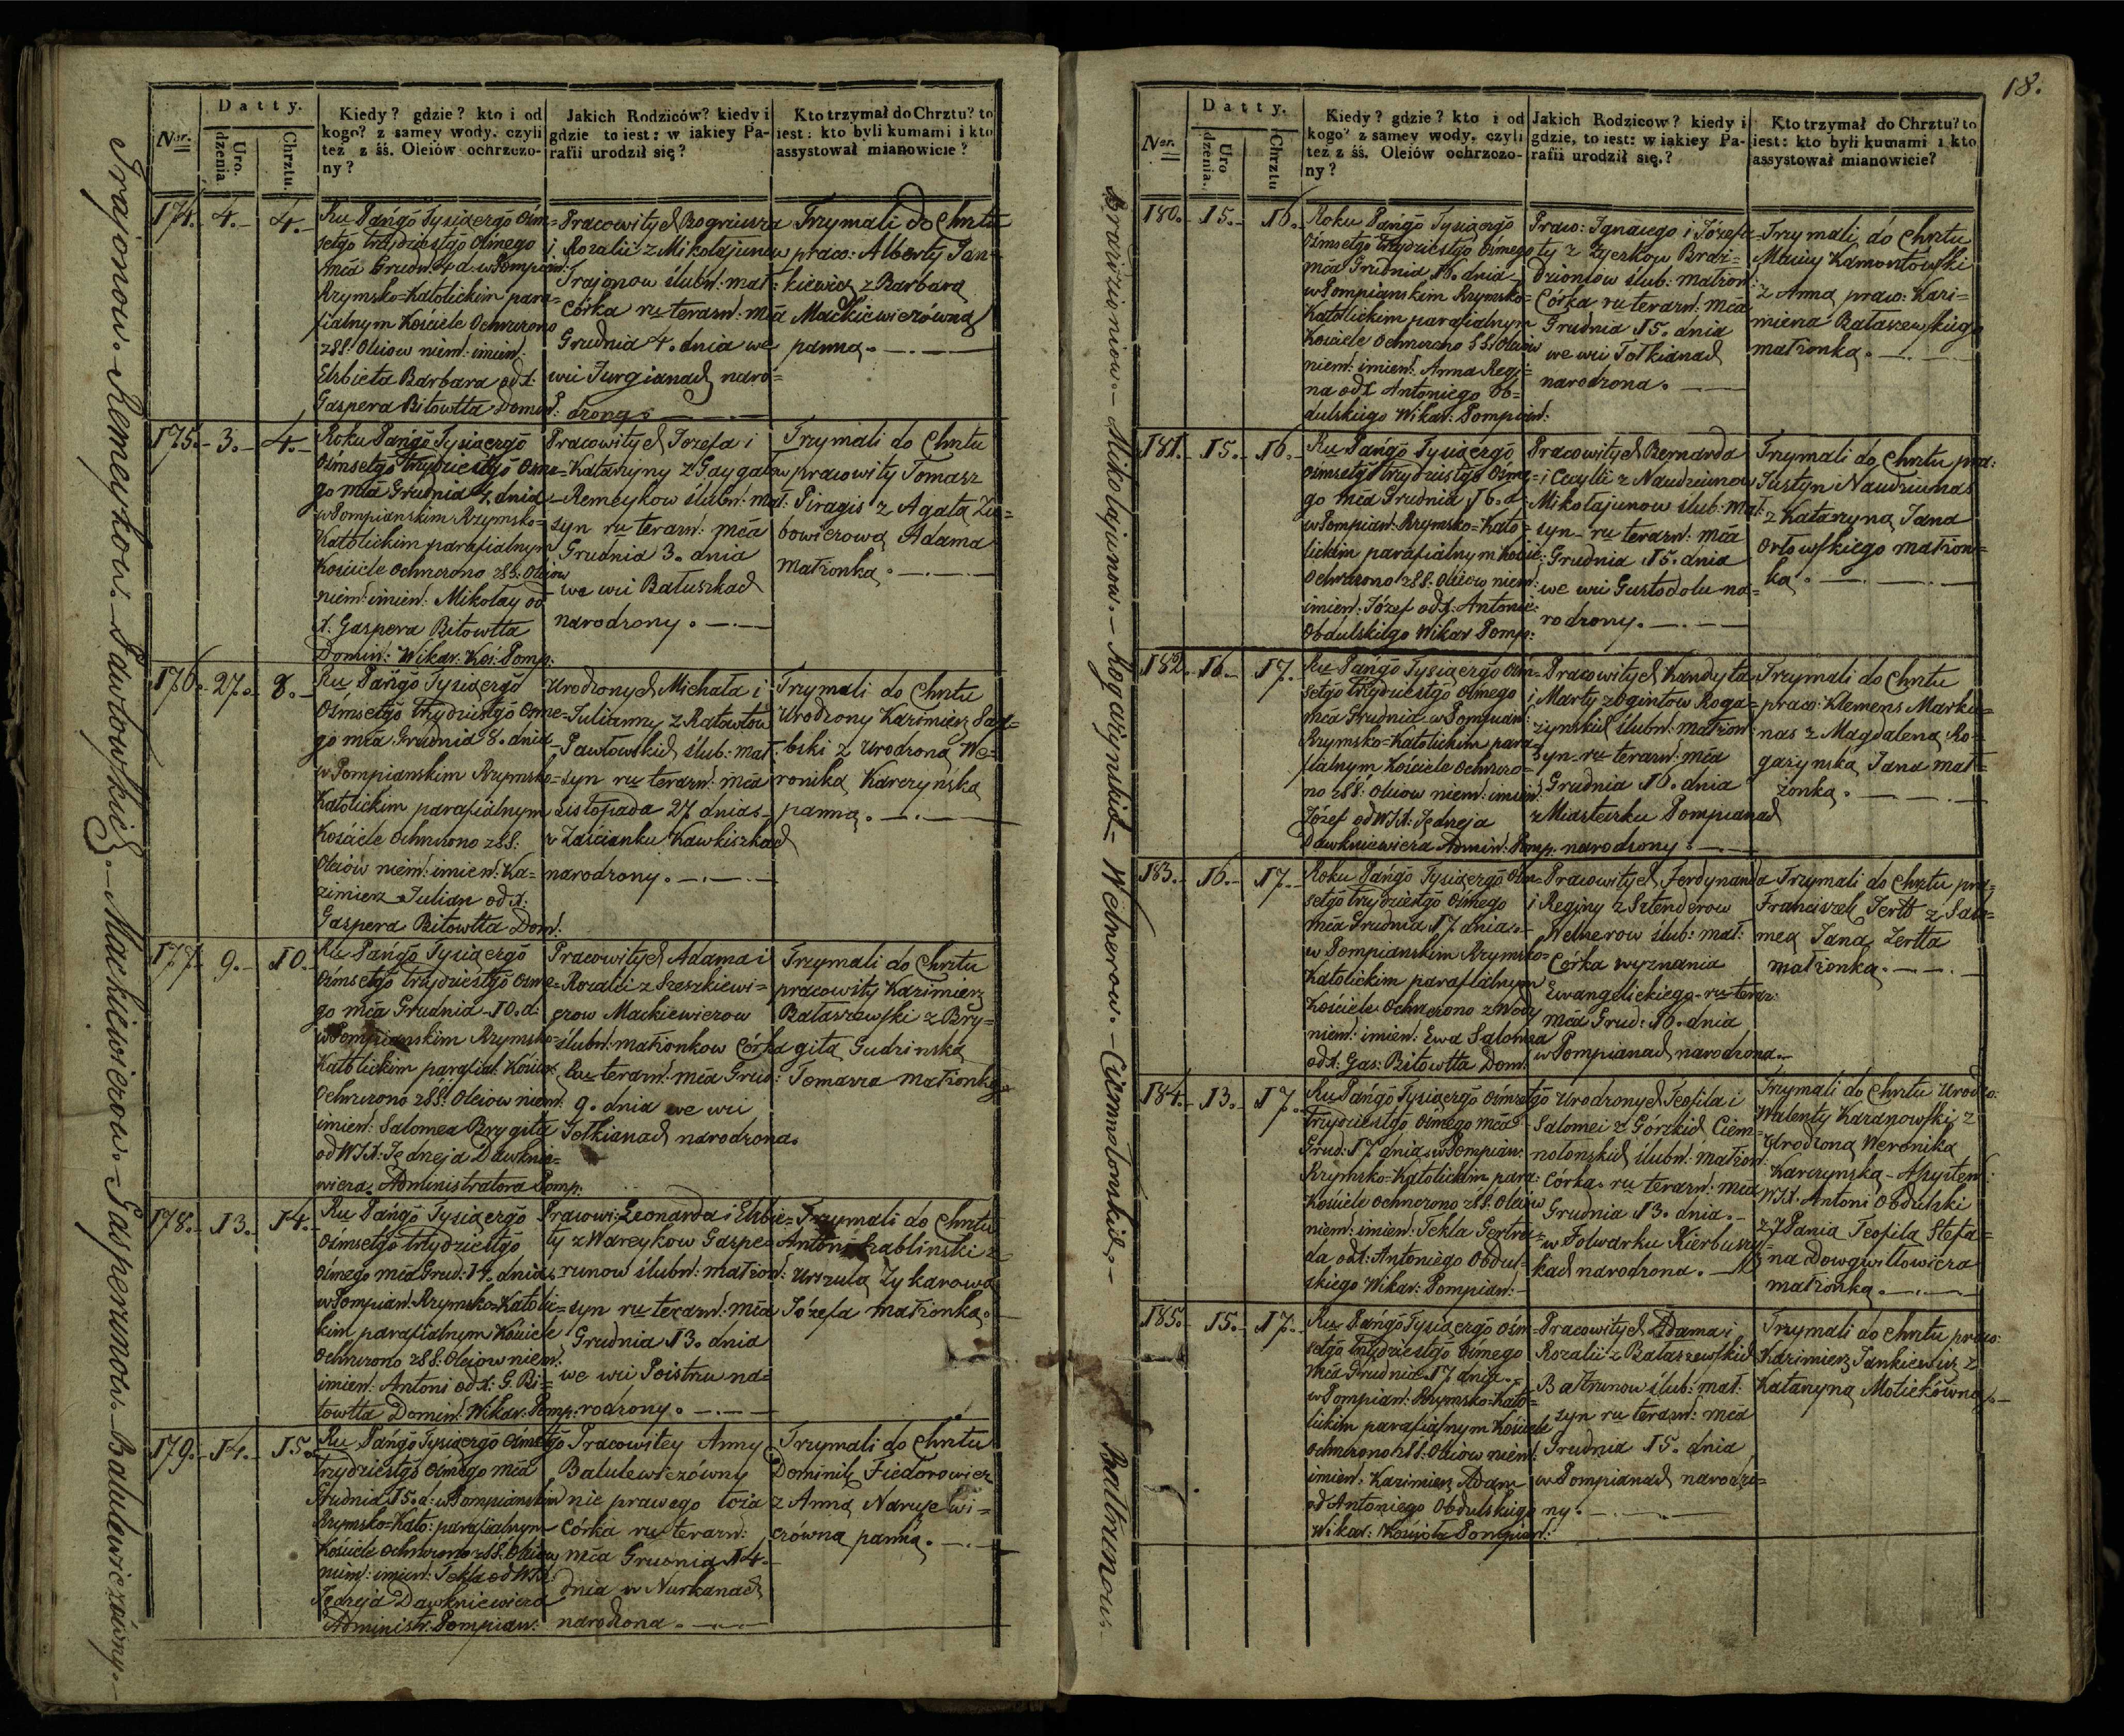 18.
Nr.
Datty.
Urodzenia
Chrztu.
Kiedy? gdzie? kto i od
kogo? z samey wody, czyli
też z śś. Oleiów ochrzczo-
ny?
Jakich Rodziców? kiedy i
gdzie to iest: w iakiey Pa-
rafii urodził się?
Kto trzymał do Chrztu? to
iest: kto byli kumami i kto
assystował mianowicie?
174. 4. 4.
Ru Pańgo Tysiącgo Óśm=
setgo Trzydziestgo Osmego
mca Grudn: 4 d. w Pompian:
Rzymsko=Katolickim para=
fialnym Kościele Ochrzczono
z SS: Oleiow niem: imien:
Elżbieta Barbara od X:
Gaspera Bitowtta Domin:
Pracowitych
i Rozalii z Mikołajunow
Trajonow ślubn: mał:
Córka ru terazn: mca
Grudnia 4. dnia we
wsi Jurgianach naro=
dzona.
Trzymali do Chrztu
praco: Alberty Jan=
kiewicz z Barbarą
Maćkiewiczówną
panną.
175. 3. 4.
Roku Pańgo Tysiącgo
Ośmsetgo Trzydziestgo Osme=
go mca Grudnia 4. dnia
w Pompianskim Rzymsko=
Katolickim parafialnym
Kościele Ochrzczono z SS. Oleiow
niem: imien: Mikołay od
X. Gaspera Bitowtta
Domin: Wikar: Koś: Pomp:
Pracowitych Jozefa i
Katarzyny z Gaygalow
Remeykow ślubn: mał:
syn ru terazn: mca
Grudnia 3. dnia
we wsi Bałuszkach
narodzony.
Trzymali do Chrztu
pracowity Tomasz
Piragis z Agatą
bowiczową Adama
małżonką.
176. 27. 8.
Ru Pańgo Tysiącgo
Ośmsetgo Trzydziestgo Osme=
go mca Grudnia 8. dnia
w Pompianskim Rzymsko=
Katolickim parafialnym
Kościele Ochrzczono z SS:
Oleiów niem: imien: Ka=
zimierz Julian od X:
Gaspera Bitowtta Dom:
Urodzonych Michała i
Julianny z Ratowtow
Pawłowskich ślub: mał:
syn ru terazn: mca
Listopada 27 dnia
w Zaścianku Kawkiszkach
narodzony.
Trzymali do Chrztu
Urodzony Kazimierz
z Urodzoną We=
roniką Karczynską
panną.
177. 9. 10.
Ru Pańgo Tysiącgo
Ośmsetgo trzydziestgo osme=
go mca Grudnia 10. d:
w Pompianskim Rzymsko=
Katolickim parafial: Kościele
Ochrzczono z SS: Oleiow niem:
imien: Salomea Brygita
od WJX: Jędrzeja Dawknie=
wicza Administratora Pomp:
Pracowitych Adama i
Rozalii z Szeszkiewi=
czow Mackiewiczow
ślubn: małżonkow Córka
ru terazn: mca Grud:
9. dnia we wsi
Tołkianach narodzona.
Trzymali do Chrztu
pracowity Kazimierz
Bałaszewski z Bry=
gitą Gudzinską
Tomasza małżonką.
178. 13. 14.
Ru Pańgo Tysiącgo
Ośmsetgo Trzydziestgo
Osmego mca Grud: 14. dnia
w Pompian: Rzymsko=Katolic=
kim parafialnym Kościele
Ochrzczono z SS: Oleiow niem:
imien: Antoni od X: G. Bi=
towtta Domin: Wikar: Pomp:
Pracowi: Leonarda i Elżbie=
ty z Wareykow Gaspe=
runow ślubn: małżon:
syn ru terazn: mca
Grudnia 13. dnia
we wsi Poistru na=
rodzony.
Trzymali do Chrztu
Antoni z
Urszulą Zykarową
Józefa małżonką.
179. 14. 15.
Ru Pańgo Tysiącgo Ośmsetgo
trzydziestgo Osmego mca
Grudnia 15. d: w Pompianskim
Rzymsko=Kato: parafialnym
Kościele Ochrzczono z SS. Oleiow
niem: imien: Tekla od WJX:
Jędrzeja Dawkniewicza
Administr: Pompian:
Pracowitey Anny
Balulewiczówny
nie prawego łoża
Córka ru terazn:
mca Grudnia 14.
dnia w Nurkanach
narodzona.
Trzymali do Chrztu
Dominik Fiedorowicz
z Anną Naruszewi=
czówną panną.
Trajonow. Remeykow. Pawłowskich. Mackiewiczow. Gasperunow. Balulewiczówny.
Nr.
Datty.
Urodzenia.
Chrztu
Kiedy? gdzie? kto i od
kogo? z samey wody, czyli
też z śś. Oleiów ochrzczo-
ny?
Jakich Rodziców? kiedy i
gdzie, to iest: w iakiey Pa-
rafii urodził się?
Kto trzymał do Chrztu? to
iest: kto byli kumami i kto
assystował mianowicie?
180. 15. 16.
Roku Pańgo Tysiącgo
Ośmsetgo Trzydziestgo Osmego
mca Grudnia 16. dnia
w Pompianskim Rzymsko=
Katolickim parafialnym
Kościele Ochrzczono z SS Oleiow
niem: imien: Anna Regi=
na od X Antoniego Ob=
dulskiego Wikar: Pompian:
Praco: Ignacego i Józefa=
ty z Braź=
dzioniow ślub: małżon:
Córka ru terazn: mca
Grudnia 15. dnia
we wsi Tołkianach
narodzona.
Trzymali do Chrztu
Maciey Kamontowski
z Anną praco: Kazi=
mierza Bałaszewskiego
małżonką.
181. 15. 16.
Ru Pańgo Tysiącgo
Ośmsetgo Trzydziestgo Ośme=
go mca Grudnia 16. d:
w Pompian: Rzymsko=Kato=
lickim parafialnym Koście:
Ochrzczono z SS: Oleiow niem:
imien: Józef od X: Antonie:
Obdulskiego Wikar Pomp:
Pracowitych Bernarda
i Cecylii z Naudziunow
Mikołajunow ślub: mał:
syn ru terazn: mca
Grudnia 15. dnia
we wsi Gustodolu na=
rodzony.
Trzymali do Chrztu pra:
Justyn Naudziunas
z Katarzyną Jana
Orłowskiego małżon=
ką.
182. 16. 17.
Ru Pańgo Tysiącgo Ośm=
setgo Trzydziestgo Osmego
mca Grudnia w Pompian:
Rzymsko=Katolickim para=
fialnym Kościele Ochrzczo=
no z SS: Oleiow niem: imien:
Józef od WJX: Jędrzeja
Dawkniewicza Admin: Pomp.
Pracowitych Kandyta
i Marty z Ogintow Roga=
żynskich ślubn: małżon:
syn ru terazn: mca
Grudnia 16. dnia
z Miasteczku Pompianach
narodzony.
Trzymali do Chrztu
praco: Klemens Marku=
nas z Magdaleną Ro=
gażynską Jana mał=
żonką.
183. 16. 17.
Roku Pańgo Tysiącgo Ośm=
setgo trzydziestgo Osmego
mca Grudnia 17. dnia
w Pompianskim Rzymsko=
Katolickim parafialnym
Kościele Ochrzczono z Wody
niem: imien: Ewa Salomea
od X: Gas: Bitowtta Dom:
Pracowitych Ferdynanda
i Reginy z Sztenderow
Welnerow ślub: mał:
Córka wyznania
Ewangelickiego ru teraz:
mca Grud: 16. dnia
w Pompianach narodzona.
Trzymali do Chrztu pra=
Franciszek Zertt z Salo=
meą Jana Zertta
małżonką.
184. 13. 17.
Ru Pańgo Tysiącgo Ośmsetgo
Trzydziestgo Osmego mca
Grud: 17 dnia w Pompian:
Rzymsko=Katolickim para:
Kościele Ochrzczono z SS: Oleiow
niem: imien: Tekla Gertru=
da od X: Antoniego Obdul=
skiego Wikar: Pompian:
Urodzonych Teofila i
Salomei z Górskich Ciem=
nołonskich ślubn: małżon:
Córka ru terazn: mca
Grudnia 13. dnia
w Folwarku Kierbuszy=
kach narodzona.
Trzymali do Chrztu Urodzo:
Walenty Karanowski z
Urodzoną Weroniką
Karczynską. Asysten:
WJX: Antoni Obdulski
z JPanią Teofilą Stefa=
na Dowgwiłłowicza
małżonką.
185. 15. 17.
Ru Pańgo Tysiącgo Ośm=
setgo Trzydziestgo Osmego
mca Grudnia 17. dnia
w Pompian: Rzymsko=Kato=
lickim parafialnym Kościele
Ochrzczono z SS: Oleiow niem:
imien: Kazimierz Adam
od Antoniego Obdulskiego
Wikar: Kościoła Pompian:
Pracowitych Adama i
Rozalii z Bałaszewskich
Baltrunow ślub: mał:
syn ru terazn: mca
Grudnia 15. dnia
w Pompianach narodzo=
ny.
Trzymali do Chrztu praco:
Kazimierz Jankiewicz z
Katarzyną Motiekówną
Braździoniow. Mikołajunow. Rogażynskich. Welnerow. Ciemnołonskich. Baltrunow.